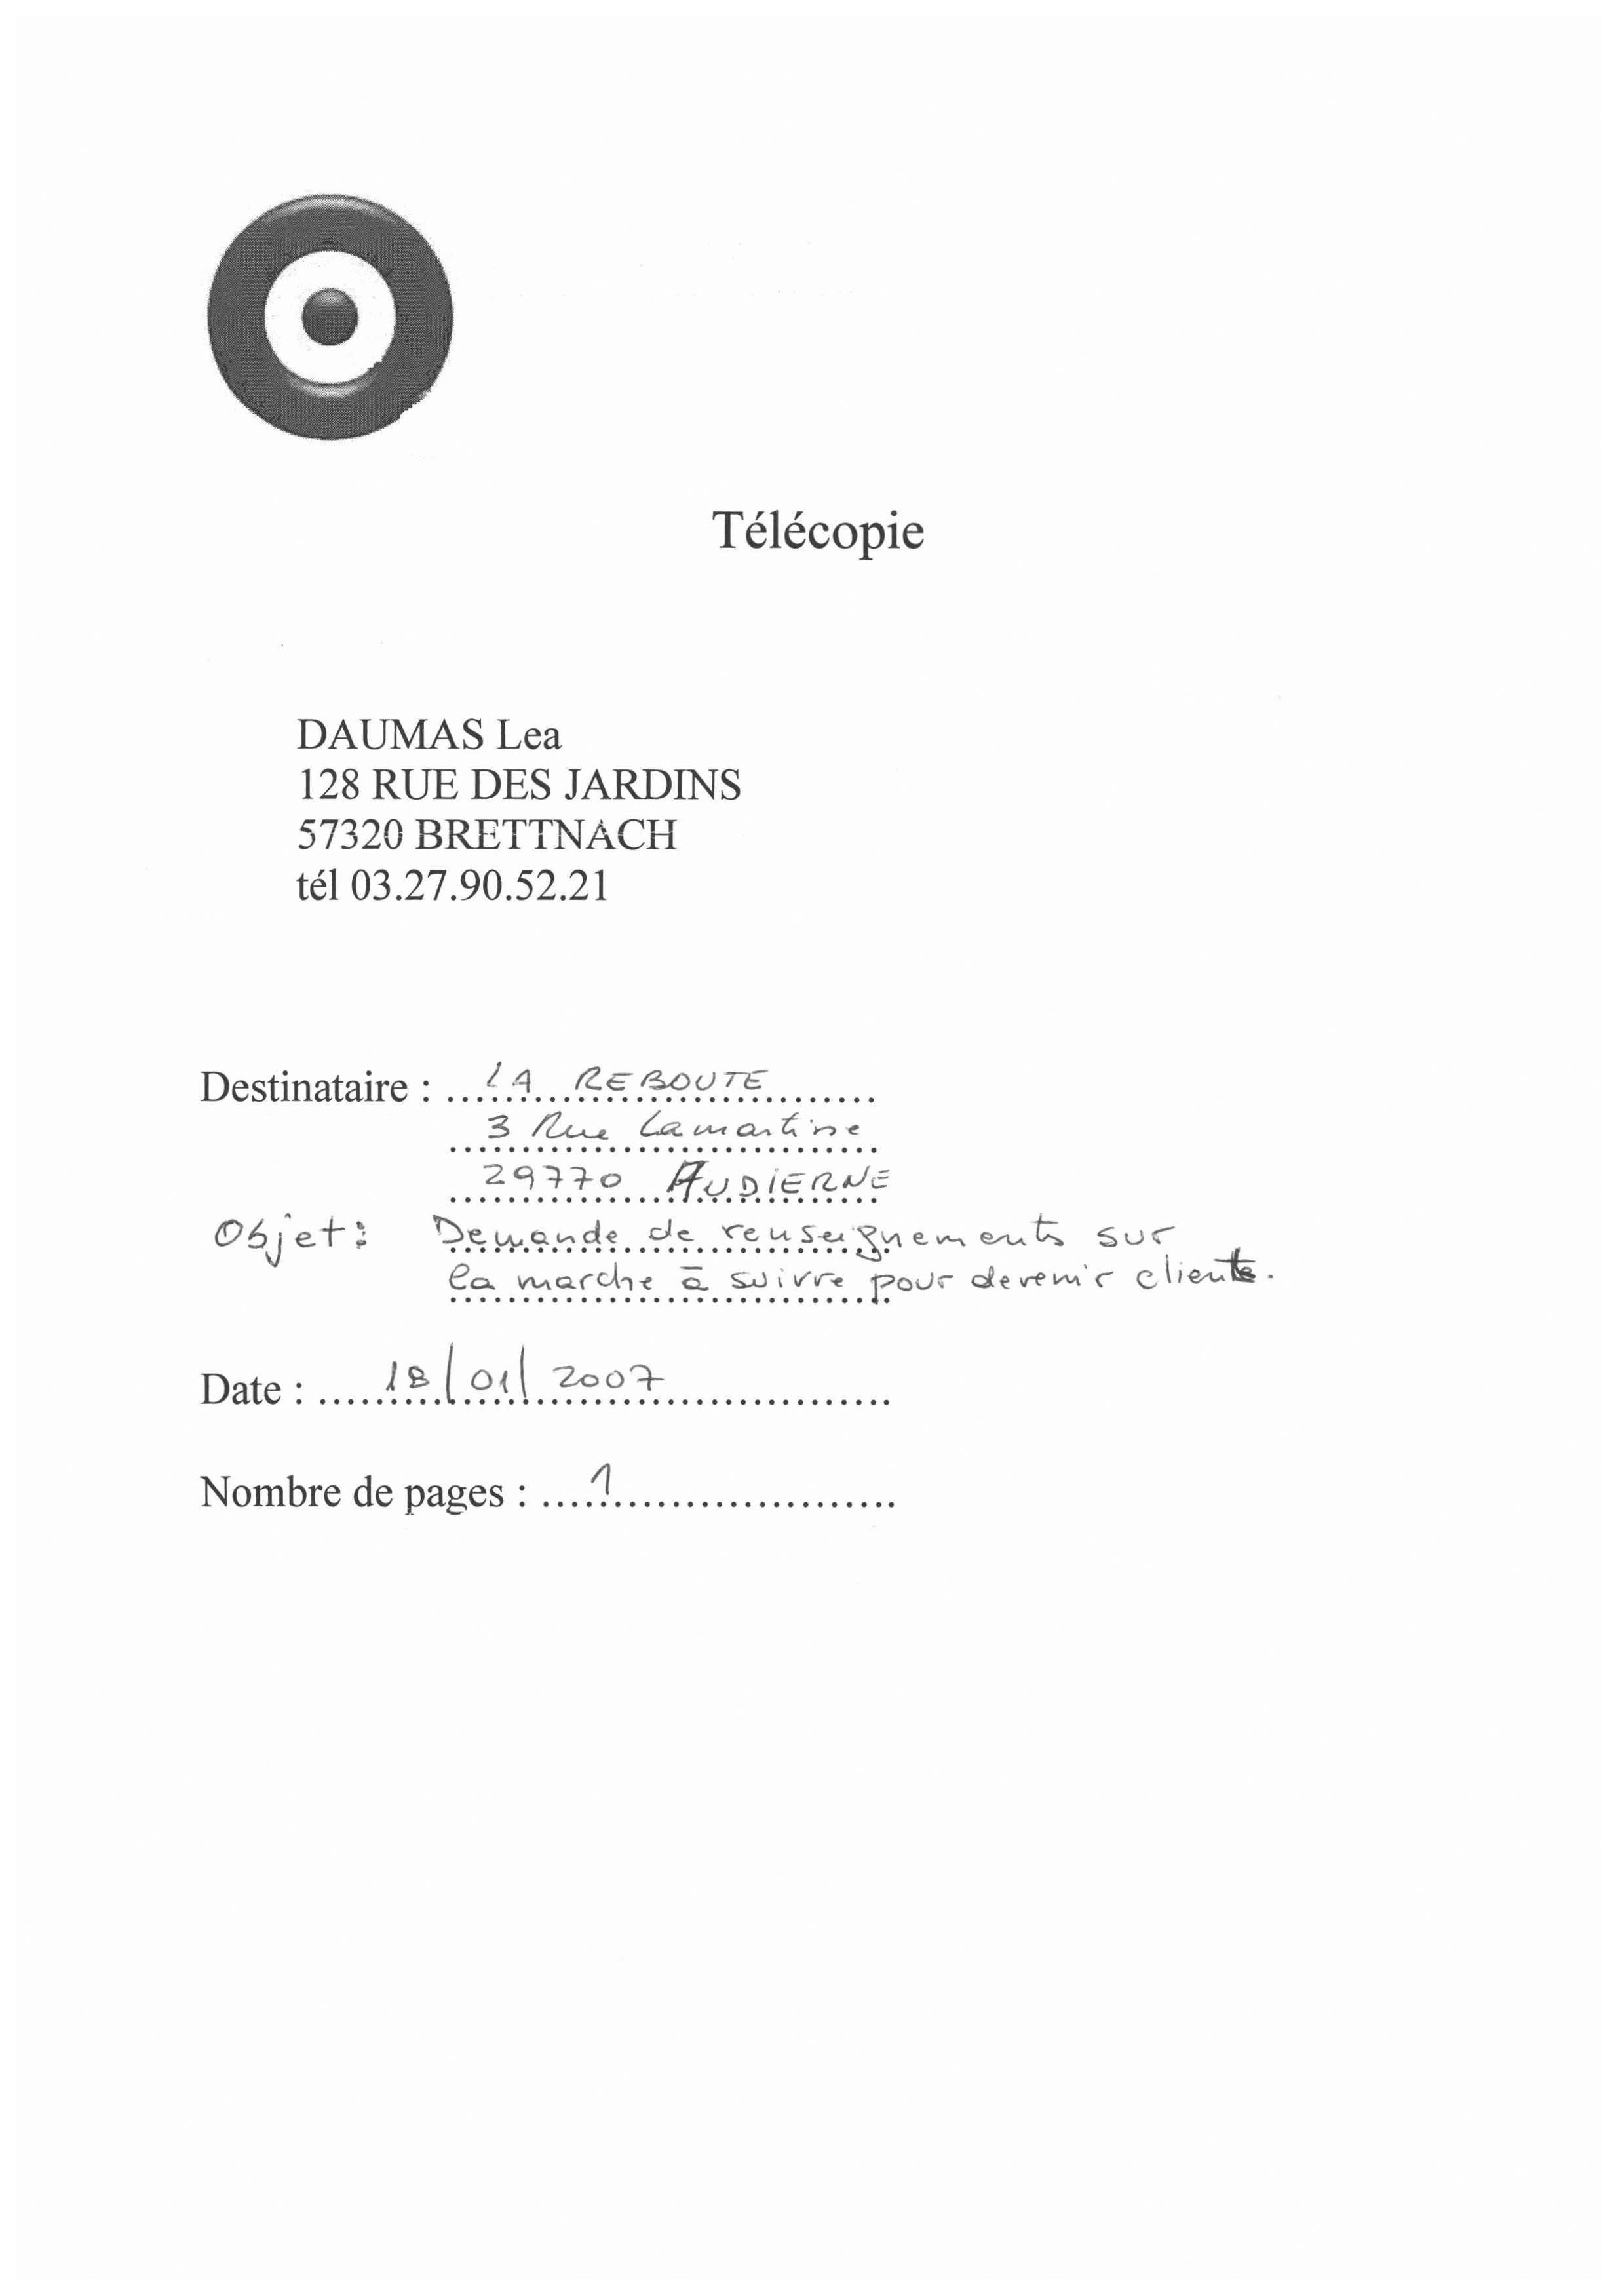 Télécopie
DAUMAS Lea
128 RUE DES JARDINS
57320 BRETTNACH
tél 03.27.90.52.21
Destinataire : LA REBOUTE
3 Rue Lamartine
29770 AUDIERNE
Objet : Demande de renseignements sur
la marche à suivre pour devenir cliente.
Date : 18/01/2007
Nombre de pages : 1